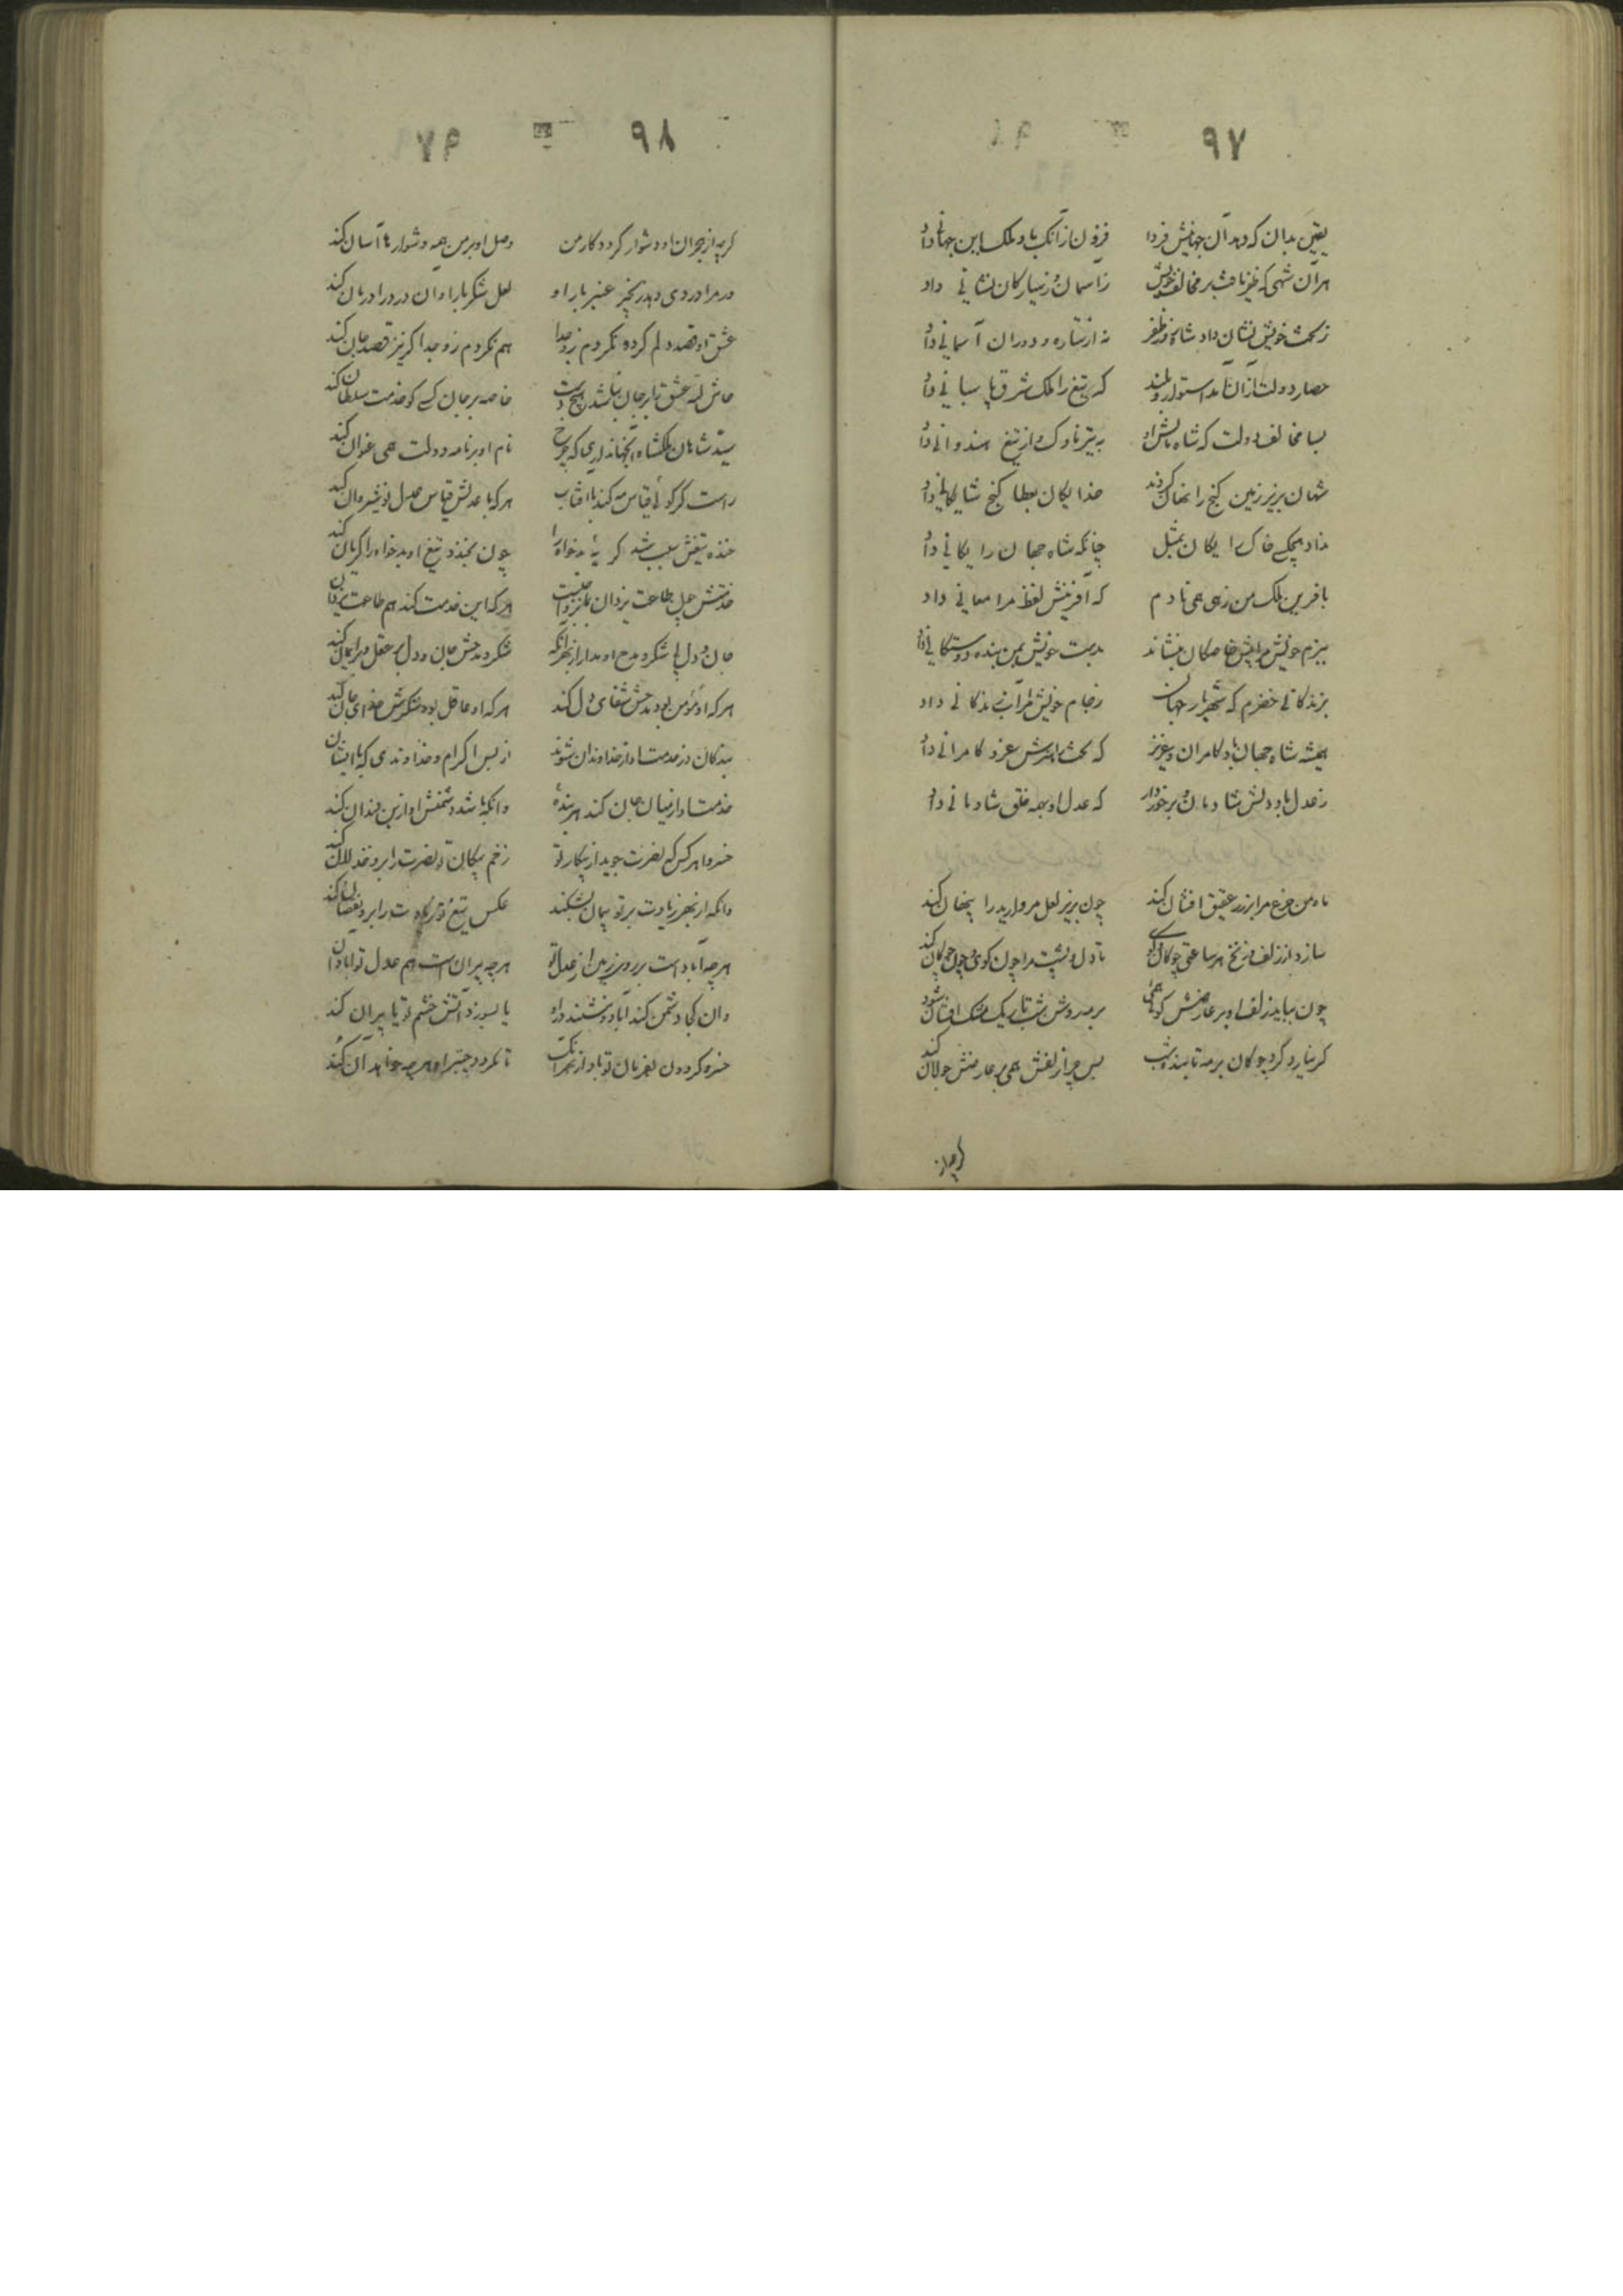 ۹۷
یقین بدان که دهد آن جهانیش فردا فزون از آنک باو ملک این جهانی داد
هر آن شهی که ظفر یافت بر مخالف خویش ز آسمان و ز سیارگان نشانی داد
ز بخت خویش نشان داد شاه و ز ظفر نه از ستاره و دوران آسمانی داد
حصار دولت از آن شد استوار و بلند که تیغ را ملک شرق پاسبانی داد
بسا مخالف دولت که شاه مالش او به تیر ناوک و از تیغ هندوانی داد
شهان بزیر زمین گنج را نهان کردند خدایگان بعطا گنج شایگانی داد
نداد هیچکسی خاک رایگان بمثل چنانکه شاه جهان را یگانی داد
بافرین ملک من زهی می نادم که آفرینش لفظ مرا معانی داد
ببزم خویش مرا پیش خاصگان بنشاند بدست خویش بمن بنده دوستگانی داد
بزندگانی خضرم که شهریار جهان ز جام خویش مرا آب زندگانی داد
همیشه شاه جهان باد کامران و عزیز که بخت بر سرش عز و کامرانی داد
ز عدل باد دلش شادمان و برخوردار که عدل او بهمه خلق شادمانی داد
ماه من جزع مرا بر زر عقیق افشان کند چون بزیر لعل مروارید را پنهان کند
سازد از زلف و زنخ هر ساعتی چوگان و گوی تا دل و پشت مرا چون گوی و چون چوگان کند
چون بباید زلف او بر عارضش گوئی همی بر مه روشن شب تاریک مشک افشان شود
گر نیارد کرد چوگان بر مه تابنده شب پس چرا زلفش همی بر عارضش جولان کند
گرچه از
۹۸
گرچه از هجران او دشوار گردد کار من وصل او بر من همه دشوارها آسان کند
ور مرا دردی دهد زنجیر عنبر بار او لعل شکر بار او آن درد را درمان کند
عشق او قصد دلم کرد و نکردم زو جدا هم نکردم زو جدا گر نیز قصد جان کند
حاش لله عشق را بر جان نباشد هیچ دست خاصه بر جان کسی کو خدمت سلطان کند
سید شاهان ملکشاه آن جهانداری که چرخ نام او بر نامه دولت همی عنوان کند
راست گر گوئی قیاس مه کند با آفتاب هر که با عدلش قیاس عدل نوشیروان کند
خنده تیغش سبب شد گریه بدخواه را چون بخندد تیغ او بدخواه را گریان کند
جان و دل با شکر و مدح او مدار از بهر آنکه شکر و مدحش جان و دل پر عقل و پر ایمان کند
هر که او مؤمن بود مدحش شفای دل کند هر که او عاقل بود شکرش غذای جان کند
بندگان در خدمت او از خداوندان شوند از بس اکرام و خداوندی که با ایشان
خدمت او از میان جان کند هر بنده وانکه باشد دشمنش او از بن دندان کند
خسروا هر کس که نصرت جوید از پیکار تو زخم پیکان تو نصرت را برو خذلان کند
وانکه از بهر زیادت بر تو پیمان بشکند عکس تیغ تو زیادت را برو نقصان کند
هرچه آبادست بر روی زمین از عدل تو هرچه ویران است هم عدل تو آبادان
وان کجا دشمن کند آباد و بنشیند درو یا بسوزد آتش خشم تو یا ویران کند
خسرو گردون بفرمان تو باد از بهر آنک تا نگردد چنبر او هرچه خواهد آن کند